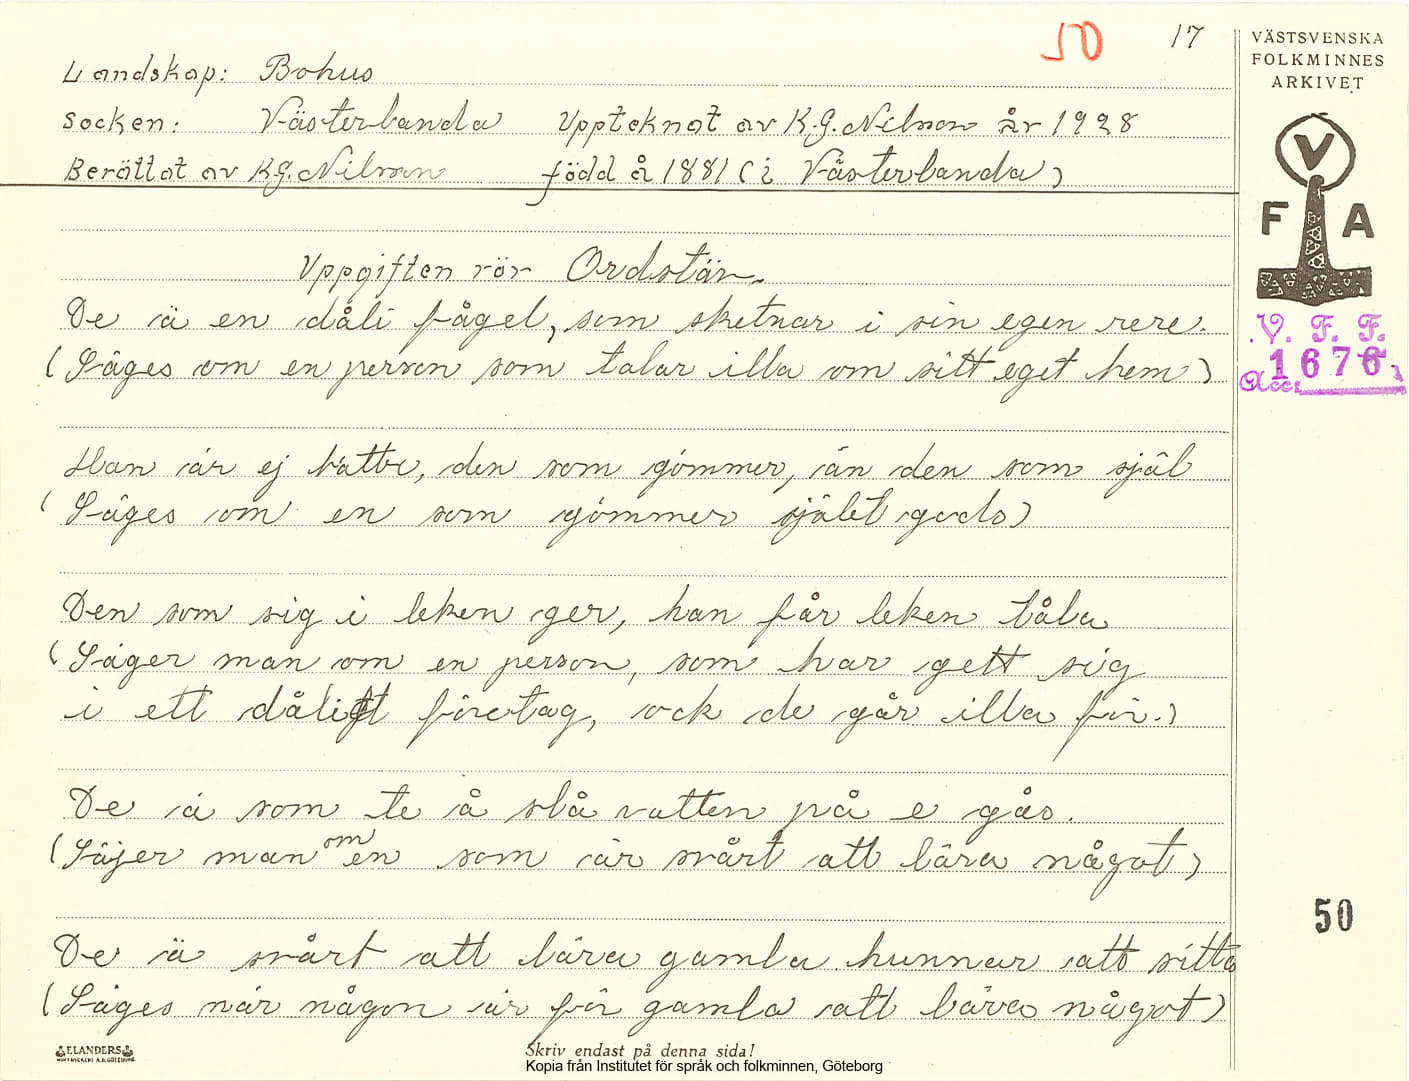 50 17
Landskap: Bohus
Socken: Västerlanda Upptcknat av K.G. Nilson år 1928
Berättat av K.G. Nilson född å 1881 (i Västerlanda)
Uppgiften rör Ordstäv.
De ä en dåli fågel, som sketnar i sin egen rere.
(Säges om en person som talar illa om sitt eget hem)
Han är ej bättre, den som gömmer, än den som själ
(Säges om en som gömmer sjålet gods)
Den som sig i leken ger, han får leken tåla
(Säger man om en person, som har gett sig
i ett dåligt företag, ock de går illa för.)
De ä som te å slå vatten på e gås.
(Säjer man om en som är svårt att lära något)
De ä svårt att lära gamla hunnar att sitta
(Säges når någon är för gamla att lära något)
ELANDERS
Skriv endast på denna sida!
Kopia från Institutet för språk och folkminnen, Göteborg
VÄSTSVENSKA
FOLKMINNES
ARKIVET
V
F A
V. F. F.
Acc: 1676
50